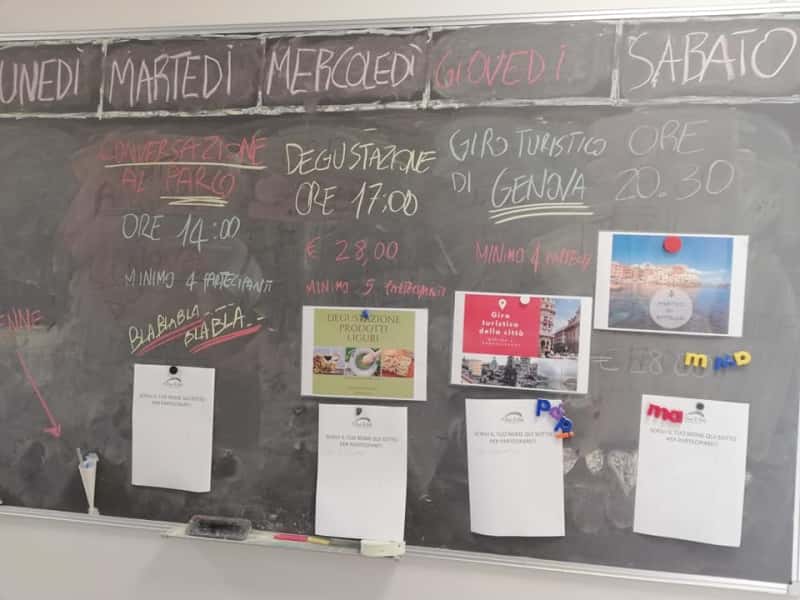 UNEDÌ
MARTEDÌ
MERCOLEDÌ
GIOVEDÌ
SABATO
CONVERSAZIONE
AL PARCO
ORE 14:00
MINIMO 4 PARTECIPANTI
BLABLABLA...
BLABLA..
ENNE
DEGUSTAZIONE
ORE 17:00
€ 28,00
MINIMO 5 PARTECIPANTI
DEGUSTAZIONE
PRODOTTI
LIGURI
GIRO TURISTICO
DI GENOVA
MINIMO 4 PARTECI
Giro
turistico
della città
ORE
20.30
SCRIVI IL TUO NOME QUI SOTTO
PER PARTECIPARE!
SCRIVI IL TUO NOME QUI SOTTO
PER PARTECIPARE!
SCRIVI IL TUO NOME QUI SOTTO
PER PARTECIPARE!
ma
SCRIVI IL TUO NOME QUI SOTTO
PER PARTECIPARE!